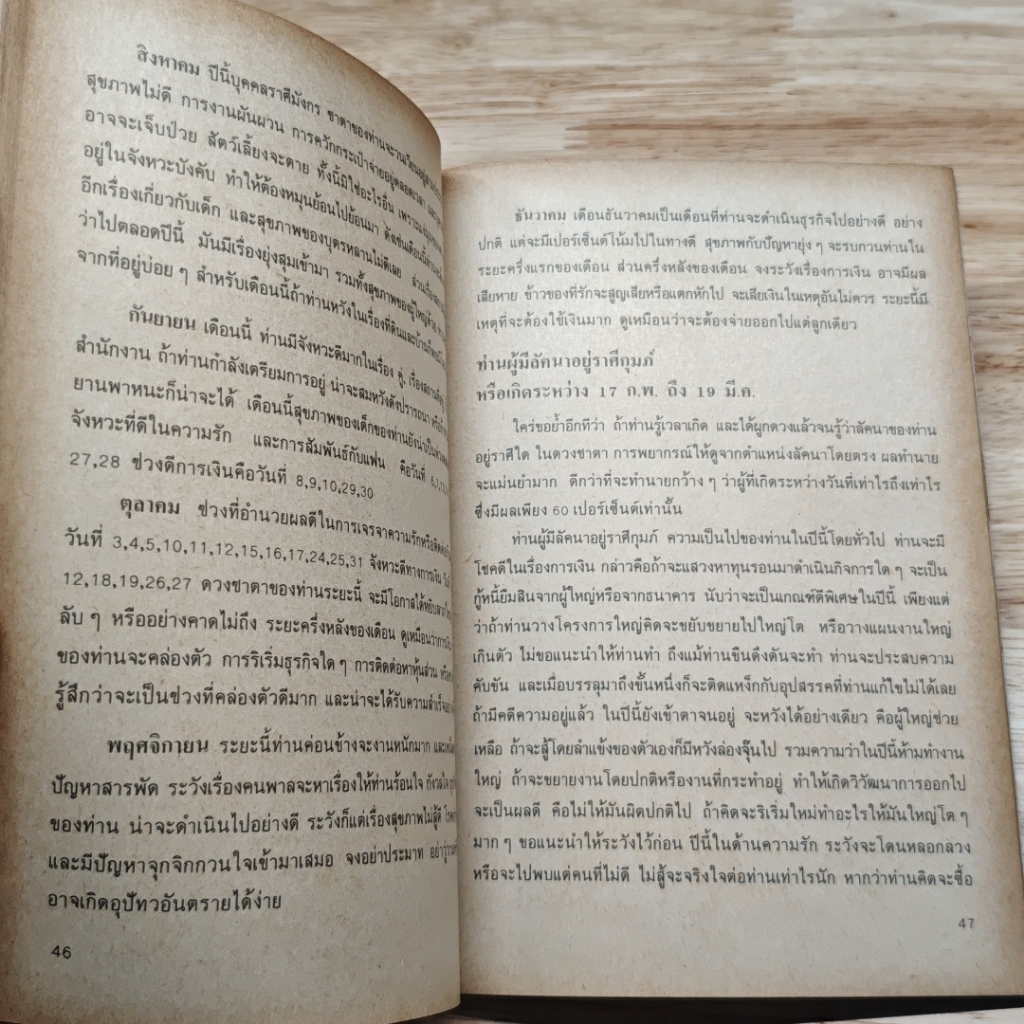 สิงหาคม ปีนี้บุคคลราศีมังกร ชาตาของท่านจะวนเวียนอยู่
สุขภาพไม่ดี การงานผันผวน การควักกระเป๋าจ่ายอยู่ตลอดเวลา
อาจจะเจ็บป่วย สัตว์เลี้ยงจะตาย ทั้งนี้มิใช่อะไรอื่น เพราะ
อยู่ในจังหวะบังคับ ทำให้ต้องหมุนย้อนไปย้อนมา ดังเช่นเดือนนี้
อีกเรื่องเกี่ยวกับเด็ก และสุขภาพของบุตรหลานไม่ดีเลย ส่วนเรื่อง
ว่าไปตลอดปีนี้ มันมีเรื่องยุ่งสุมเข้ามา รวมทั้งสุขภาพของผู้ใหญ่ด้วย
จากที่อยู่บ่อย ๆ สำหรับเดือนนี้ถ้าท่านหวังในเรื่องที่ดินและบ้าน
กันยายน เดือนนี้ ท่านมีจังหวะดีมากในเรื่อง คู่, เรื่องสถานที่อยู่
สำนักงาน ถ้าท่านกำลังเตรียมการอยู่ น่าจะสมหวังดังปรารถนา
ยานพาหนะก็น่าจะได้ เดือนนี้สุขภาพของเด็กของท่านยังน่าเป็นห่วง
จังหวะที่ดีในความรัก และการสัมพันธ์กับแฟน คือวันที่
27,28 ช่วงดีการเงินคือวันที่ 8,9,10,29,30
ตุลาคม ช่วงที่อำนวยผลดีในการเจรจาความรักหรือติดต่อ
วันที่ 3,4,5,10,11,12,15,16,17,24,25,31 จังหวะดีทางการเงิน
12,18,19,26,27 ดวงชาตาของท่านระยะนี้ จะมีโอกาสได้หยิบลาภ
ลับ ๆ หรืออย่างคาดไม่ถึง ระยะครึ่งหลังของเดือน ดูเหมือนว่าการ
ของท่านจะคล่องตัว การริเริ่มธุรกิจใด ๆ การติดต่อหาหุ้นส่วน
รู้สึกว่าจะเป็นช่วงที่คล่องตัวดีมาก และน่าจะได้รับความสำเร็จ
พฤศจิกายน ระยะนี้ท่านค่อนข้างจะงานหนักมาก
ปัญหาสารพัด ระวังเรื่องคนพาลจะหาเรื่องให้ท่านร้อนใจ กังวลใจ
ของท่าน น่าจะดำเนินไปอย่างดี ระวังก็แต่เรื่องสุขภาพไม่สู้ดี
และมีปัญหาจุกจิกกวนใจเข้ามาเสมอ จงอย่าประมาท
อาจเกิดอุปัทวอันตรายได้ง่าย
46
ธันวาคม เดือนธันวาคมเป็นเดือนที่ท่านจะดำเนินธุรกิจไปอย่างดี อย่าง
ปกติ แต่จะมีเปอร์เซ็นต์โน้มไปในทางดี สุขภาพกับปัญหายุ่ง ๆ จะรบกวนท่านใน
ระยะครึ่งแรกของเดือน ส่วนครึ่งหลังของเดือน จงระวังเรื่องการเงิน อาจมีผล
เสียหาย ข้าวของที่รักจะสูญเสียหรือแตกหักไป จะเสียเงินในเหตุอันไม่ควร ระยะนี้มี
เหตุที่จะต้องใช้เงินมาก ดูเหมือนว่าจะต้องจ่ายออกไปแต่ลูกเดียว
ท่านผู้มีลัคนาอยู่ราศีกุมภ์
หรือเกิดระหว่าง 17 ก.พ. ถึง 19 มี.ค.
ใคร่ขอย้ำอีกทีว่า ถ้าท่านรู้เวลาเกิด และได้ผูกดวงแล้วจนรู้ว่าลัคนาของท่าน
อยู่ราศีใด ในดวงชาตา การพยากรณ์ให้ดูจากตำแหน่งลัคนาโดยตรง ผลทำนาย
จะแม่นยำมาก ดีกว่าที่จะทำนายกว้าง ๆ ว่าผู้ที่เกิดระหว่างวันที่เท่าไรถึงเท่าไร
ซึ่งมีผลเพียง 60 เปอร์เซ็นต์เท่านั้น
ท่านผู้มีลัคนาอยู่ราศีกุมภ์ ความเป็นไปของท่านในปีนี้โดยทั่วไป ท่านจะมี
โชคดีในเรื่องการเงิน กล่าวคือถ้าจะแสวงหาทุนรอนมาดำเนินกิจการใด ๆ จะเป็น
กู้หนี้ยืมสินจากผู้ใหญ่หรือจากธนาคาร นับว่าจะเป็นเกณฑ์ดีพิเศษในปีนี้ เพียงแต่
ว่าถ้าท่านวางโครงการใหญ่คิดจะขยับขยายไปใหญ่โต หรือวางแผนงานใหญ่
เกินตัว ไม่ขอแนะนำให้ท่านทำ ถึงแม้ท่านขืนดึงดันจะทำ ท่านจะประสบความ
คับขัน และเมื่อบรรลุมาถึงขั้นหนึ่งก็จะติดแหง็กกับอุปสรรคที่ท่านแก้ไขไม่ได้เลย
ถ้ามีคดีความอยู่แล้ว ในปีนี้ยังเข้าตาจนอยู่ จะหวังได้อย่างเดียว คือผู้ใหญ่ช่วย
เหลือ ถ้าจะสู้โดยลำแข้งของตัวเองก็มีหวังล่องจุ๊นไป รวมความว่าในปีนี้ห้ามทำงาน
ใหญ่ ถ้าจะขยายงานโดยปกติหรืองานที่กระทำอยู่ ทำให้เกิดวิวัฒนาการออกไป
จะเป็นผลดี คือไม่ให้มันผิดปกติไป ถ้าคิดจะริเริ่มใหม่ทำอะไรให้มันใหญ่โต ๆ
มาก ๆ ขอแนะนำให้ระวังไว้ก่อน ปีนี้ในด้านความรัก ระวังจะโดนหลอกลวง
หรือจะไปพบแต่คนที่ไม่ดี ไม่สู้จะจริงใจต่อท่านเท่าไรนัก หากว่าท่านคิดจะซื้อ
47